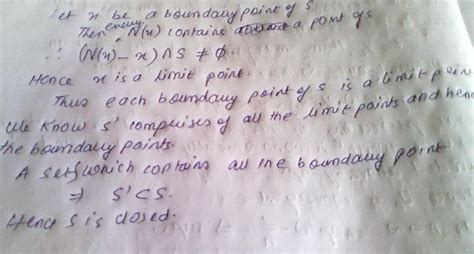 let x be a boundary point of S
Then every N(x) contains a point of S
∴ (N(x) - x) ∩ S ≠ ϕ.
Hence x is a limit point.
Thus each boundary point of S is a limit poin
We know S' comprises of all the limit points and hen
the boundary points.
A set S which contains all the boundary point
⇒ S' ⊂ S.
Hence S is closed.